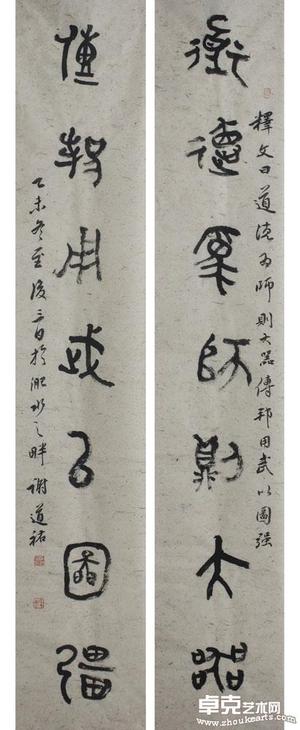 道德為師則大器
釋文曰道德為師則大器傳邦用武以圖強
傳邦用武以圖彊
乙未冬至後三日於淝水之畔謝道祐
卓克艺术网
www.zhoukearts.com